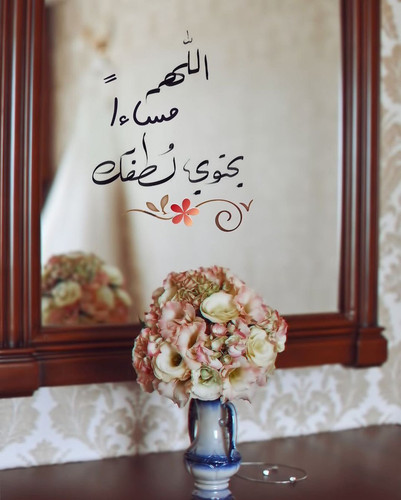 اللّهم
مساءاً
يحتوي لُطفك